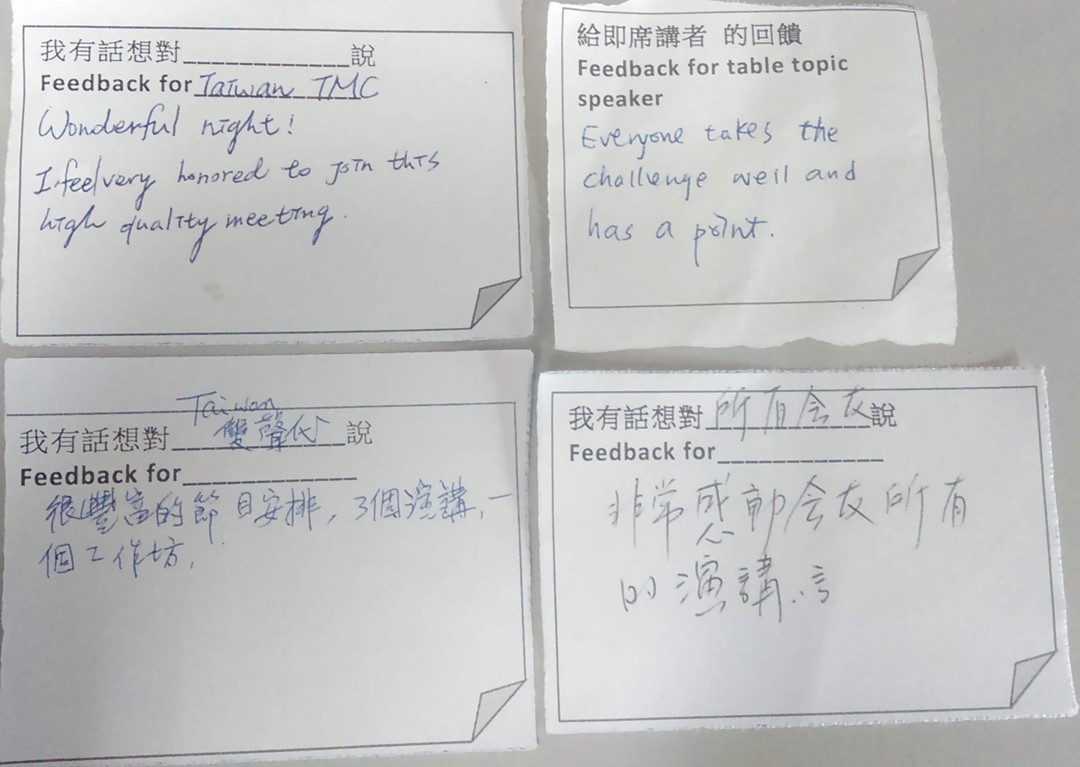 我有話想對_____________說
Feedback for Taiwan TMC
Wonderful night!
I feel very honored to join this
high quality meeting.
給即席講者 的回饋
Feedback for table topic
speaker
Everyone takes the
challenge well and
has a point.
Taiwan
我有話想對 雙聲代 說
Feedback for_____________
很豐富的節目安排, 3個演講, 一
個工作坊,
我有話想對 所有会友 說
Feedback for_____________
非常感動会友所有
的演講